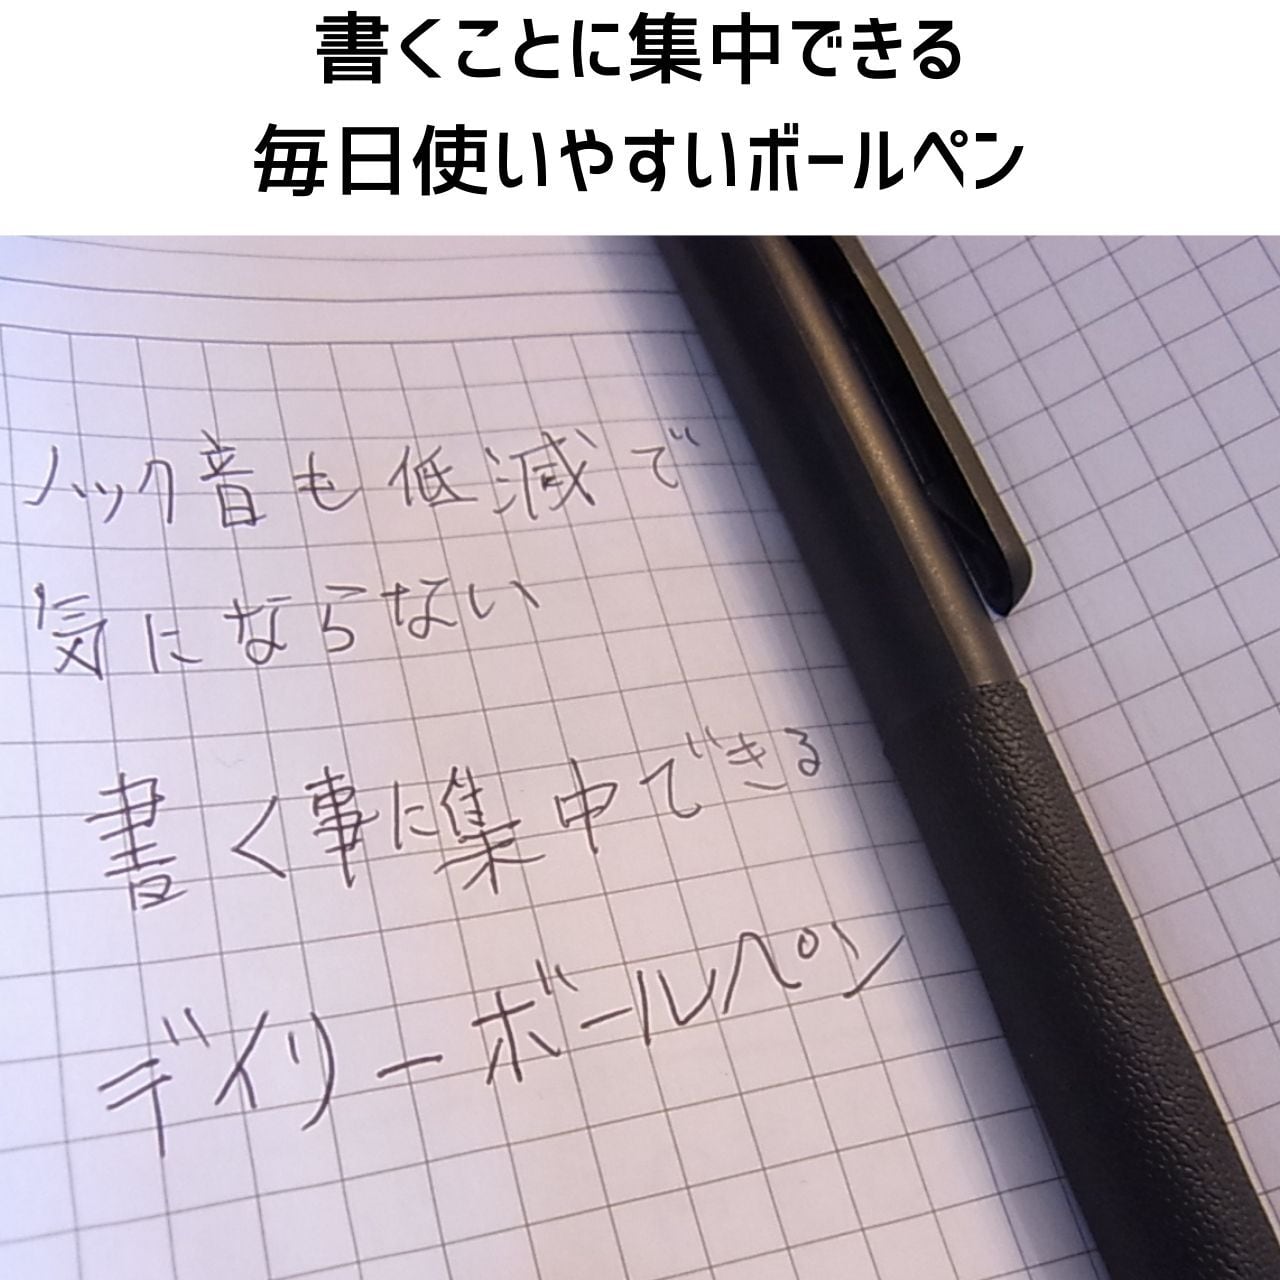 書くことに集中できる
毎日使いやすいボールペン
ノック音も低減で
気にならない
書く事に集中できる
デイリーボールペン